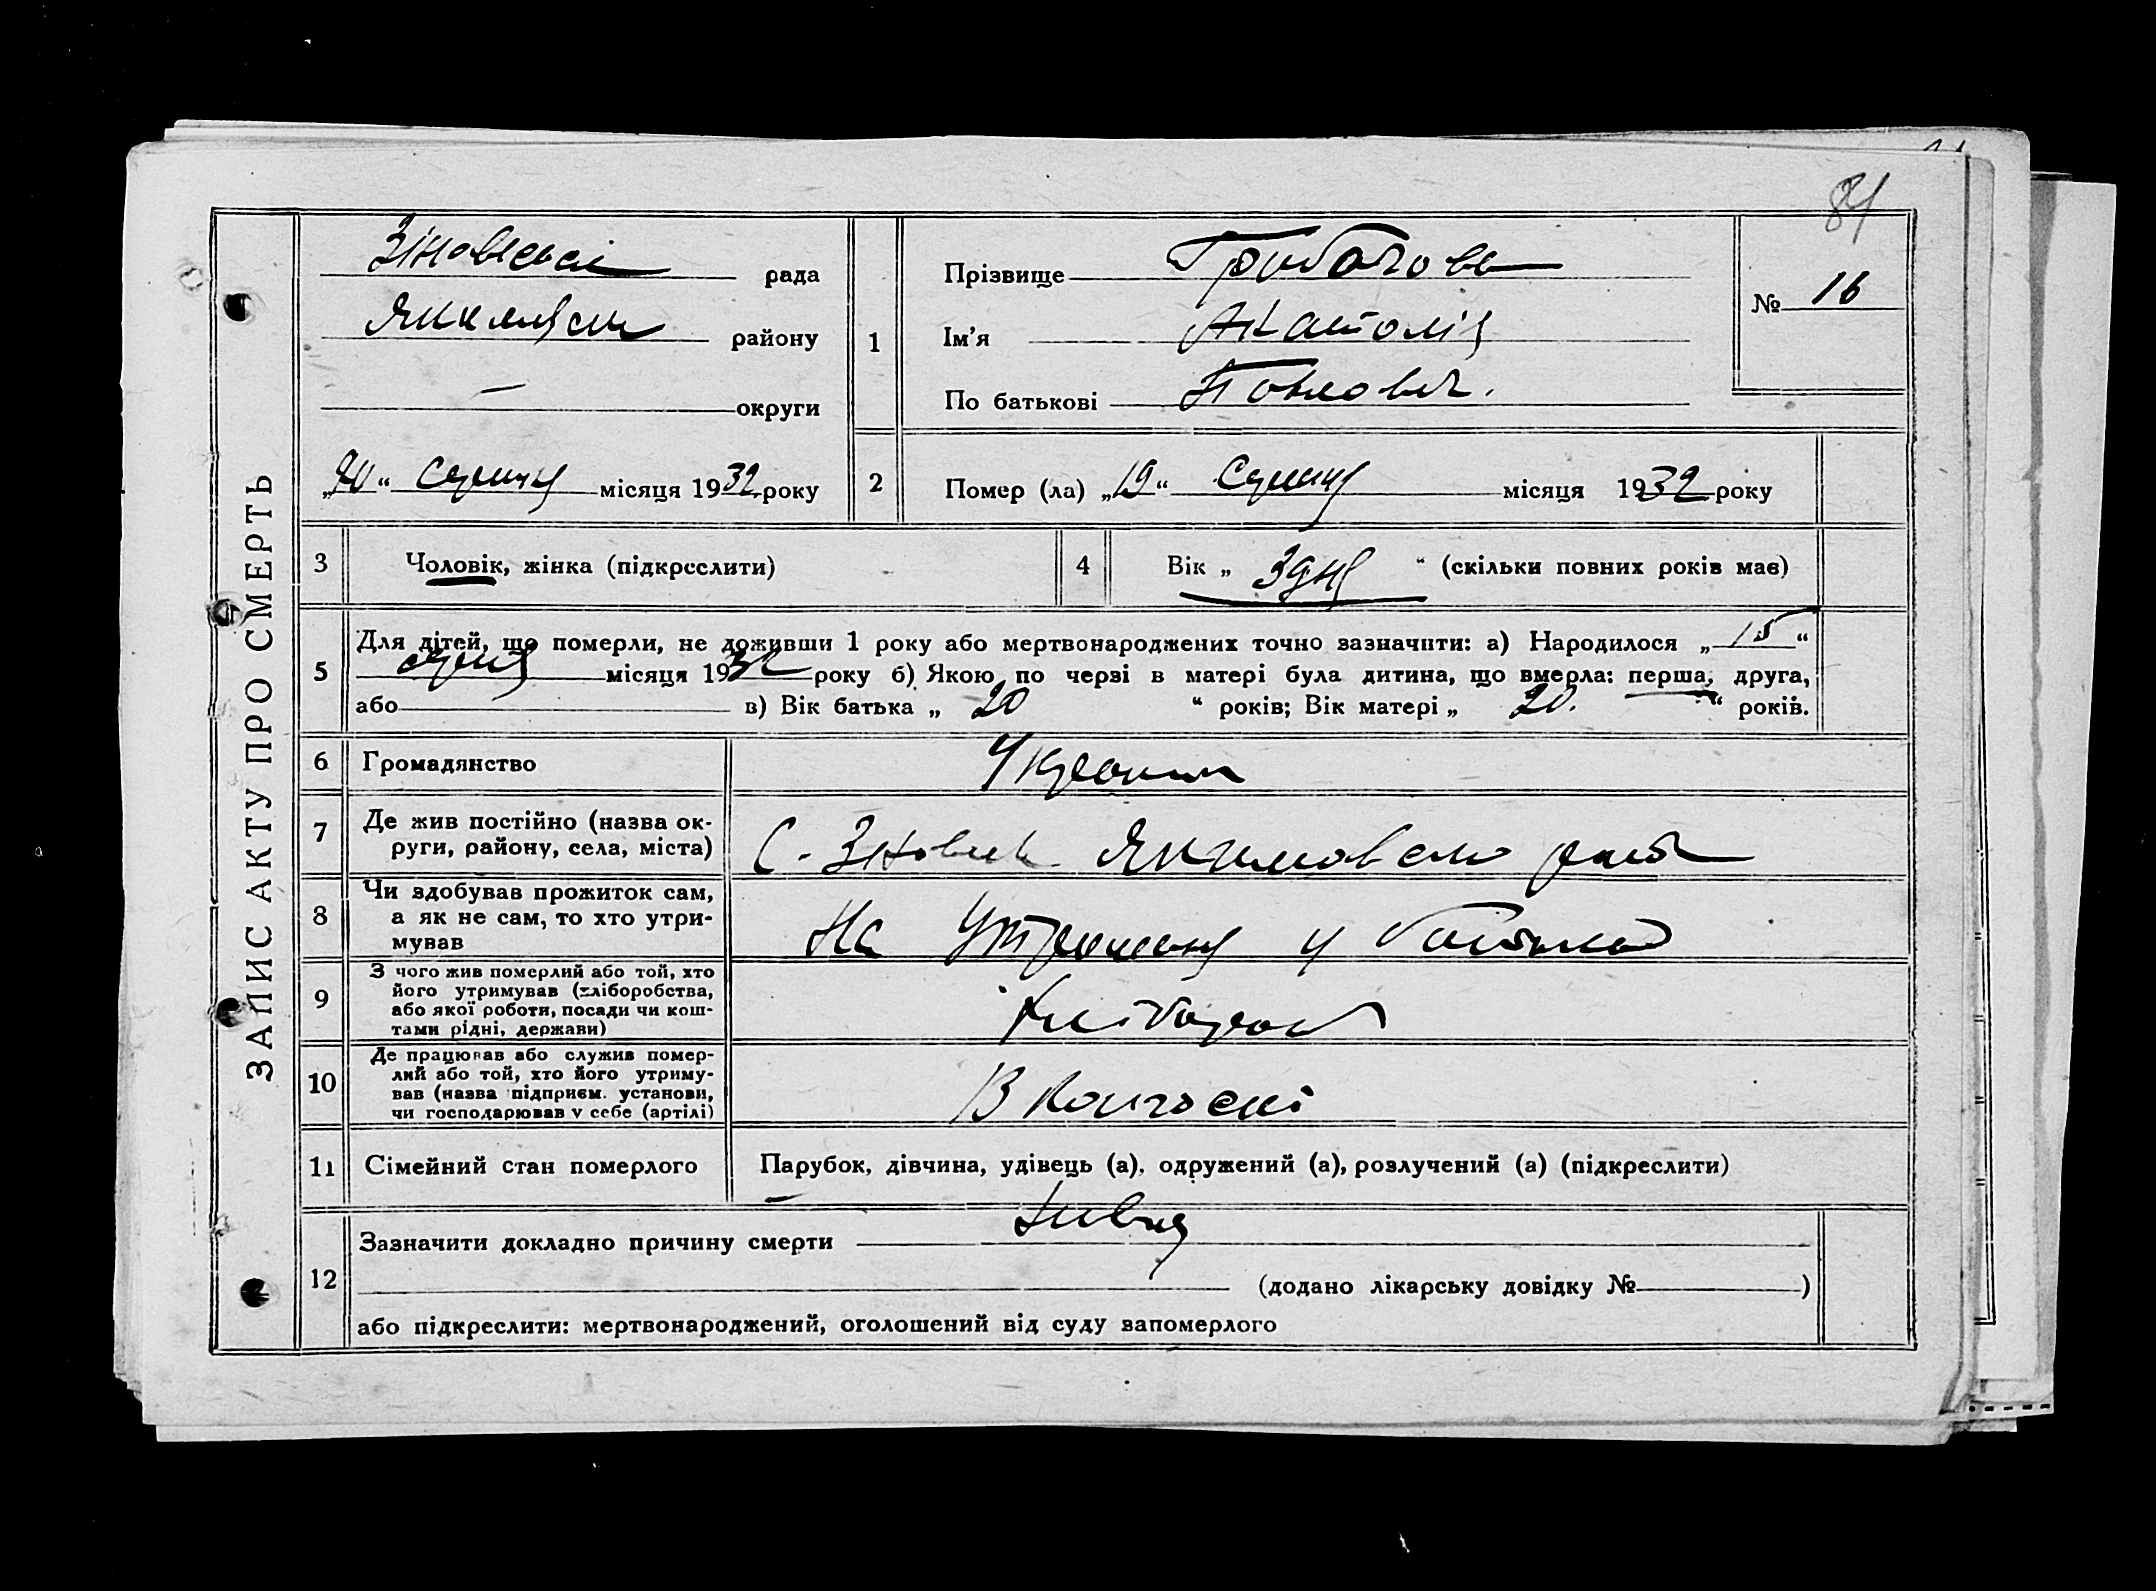 84
ЗАПИС АКТУ ПРО СМЕРТЬ
рада
району
– округи
„20“ місяця 1932 року
1
Прізвище
Ім'я Анатолій
По батькові Павлович.
№ 16
2
Помер (ла) „19“ місяця 1932 року
3
Чоловік, жінка (підкреслити)
4
Вік „ 3 дня “ (скільки повних років має)
5
Для дітей, що померли, не доживши 1 року або мертвонароджених точно зазначити: а) Народилося „15“
місяця 1932 року б) Якою по черзі в матері була дитина, що вмерла: перша, друга,
або в) Вік батька „ 20 “ років; Вік матері „ 20. “ років.
6
Громадянство
7
Де жив постійно (назва ок-
руги, району, села, міста)
С.
8
Чи здобував прожиток сам,
а як не сам, то хто утри-
мував
На у
9
З чого жив померлий або той, хто
його утримував (хліборобства,
або якої роботи, посади чи кош-
тами рідні, держави)
10
Де працював або служив помер-
лий або той, хто його утриму-
вав (назва підприєм. установи,
чи господарював у себе (артілі)
В
11
Сімейний стан померлого
Парубок, дівчина, удівець (а), одружений (а), розлучений (а) (підкреслити)
12
Зазначити докладно причину смерти
(додано лікарську довідку № )
або підкреслити: мертвонароджений, оголошений від суду запомерлого